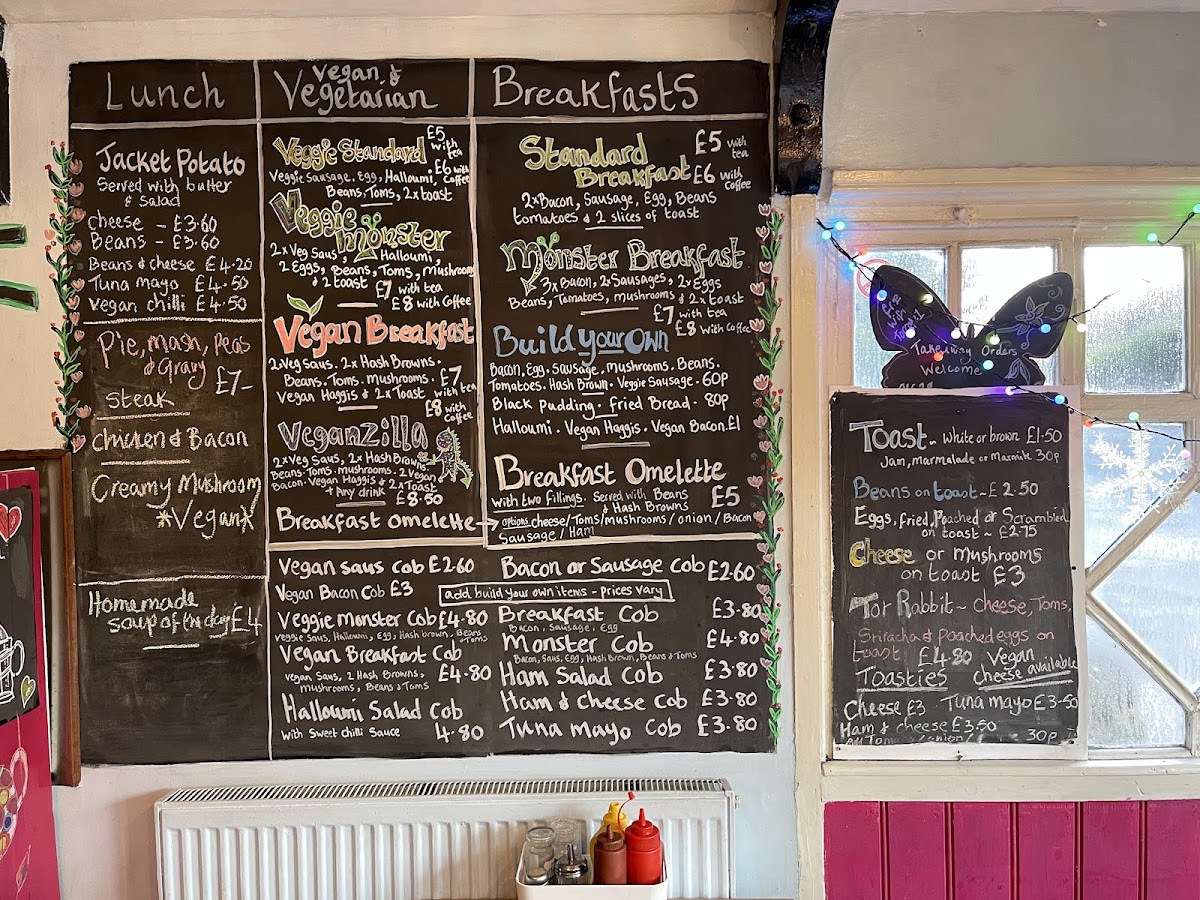 Lunch
Jacket Potato
Served with butter
& salad
cheese - £3·60
Beans - £3·60
Beans & cheese £4·20
Tuna mayo £4·50
vegan chilli £4·50
Pie, mash, Peas
& Gravy
£7-
steak
Chicken & Bacon
Creamy Mushroom
*Vegan*
Homemade
soup of the day £4
Vegan &
Vegetarian
Veggie Standard £5 with tea
£6 with Coffee
Veggie Sausage, Egg, Halloumi,
Beans, Toms, 2x toast
Veggie Monster
2x Veg Saus, 2x Halloumi,
2 Eggs, Beans, Toms, Mushroom
& 2 toast £7 with tea
£8 with Coffee
Vegan Breakfast
2x Veg saus. 2x Hash Browns.
Beans. Toms. Mushrooms.
Vegan Haggis & 2x Toast
£7 with tea
£8 with Coffee
Veganzilla
2x Veg Saus, 2x Hash Browns
Beans. Toms. mushrooms. 2 Vegan
Bacon. Vegan Haggis & 2x Toast
+ Any drink £8·50
Breakfast omelette →
Breakfasts
Standard Breakfast
£5 with tea
£6 with coffee
2xBacon, Sausage, Egg, Beans
tomatoes & 2 slices of toast
Monster Breakfast
3x Bacon, 2x Sausages, 2x Eggs
Beans, Tomatoes, mushrooms & 2x toast
£7 with tea
£8 with Coffee
Build your Own
Bacon, Egg. Sausage, Mushrooms. Beans.
Tomatoes. Hash Brown. Veggie Sausage. 60p
Black Pudding. Fried Bread. 80p
Halloumi. Vegan Haggis. Vegan Bacon. £1
Breakfast Omelette
with two fillings. Served with Beans
& Hash Browns £5
options cheese/Toms/mushrooms/onion/Bacon
Sausage/Ham
Vegan saus cob £2·60
Vegan Bacon Cob £3
add build your own items - prices vary
Veggie monster Cob £4·80
Veggie Saus, Halloumi, Egg, Hash brown, Beans
& Toms
Vegan Breakfast Cob
vegan Saus, 2 Hash Browns,
mushrooms, Beans & Toms
£4·80
Halloumi Salad Cob
with Sweet chilli Sauce 4·80
Bacon or Sausage Cob £2·60
Breakfast Cob £3·80
Bacon, Sausage, Egg
Monster Cob £4·80
Bacon, Saus, Egg, Hash Brown, Beans & Toms
Ham Salad Cob £3·80
Ham & Cheese Cob £3·80
Tuna mayo Cob £3·80
Takeaway Orders
Welcome
Toast - White or brown £1·50
Jam, Marmalade or Marmite 30p
Beans on toast - £2·50
Eggs, fried, Poached or Scrambled
on toast - £2·75
Cheese or mushrooms
on toast £3
Tor Rabbit ~ cheese, Toms,
Sriracha & Poached eggs on
toast £4·80
Toasties
Vegan
Cheese available
Cheese £3 Tuna mayo £3-50
Ham & cheese £3.50
Add Toms, onion 30p